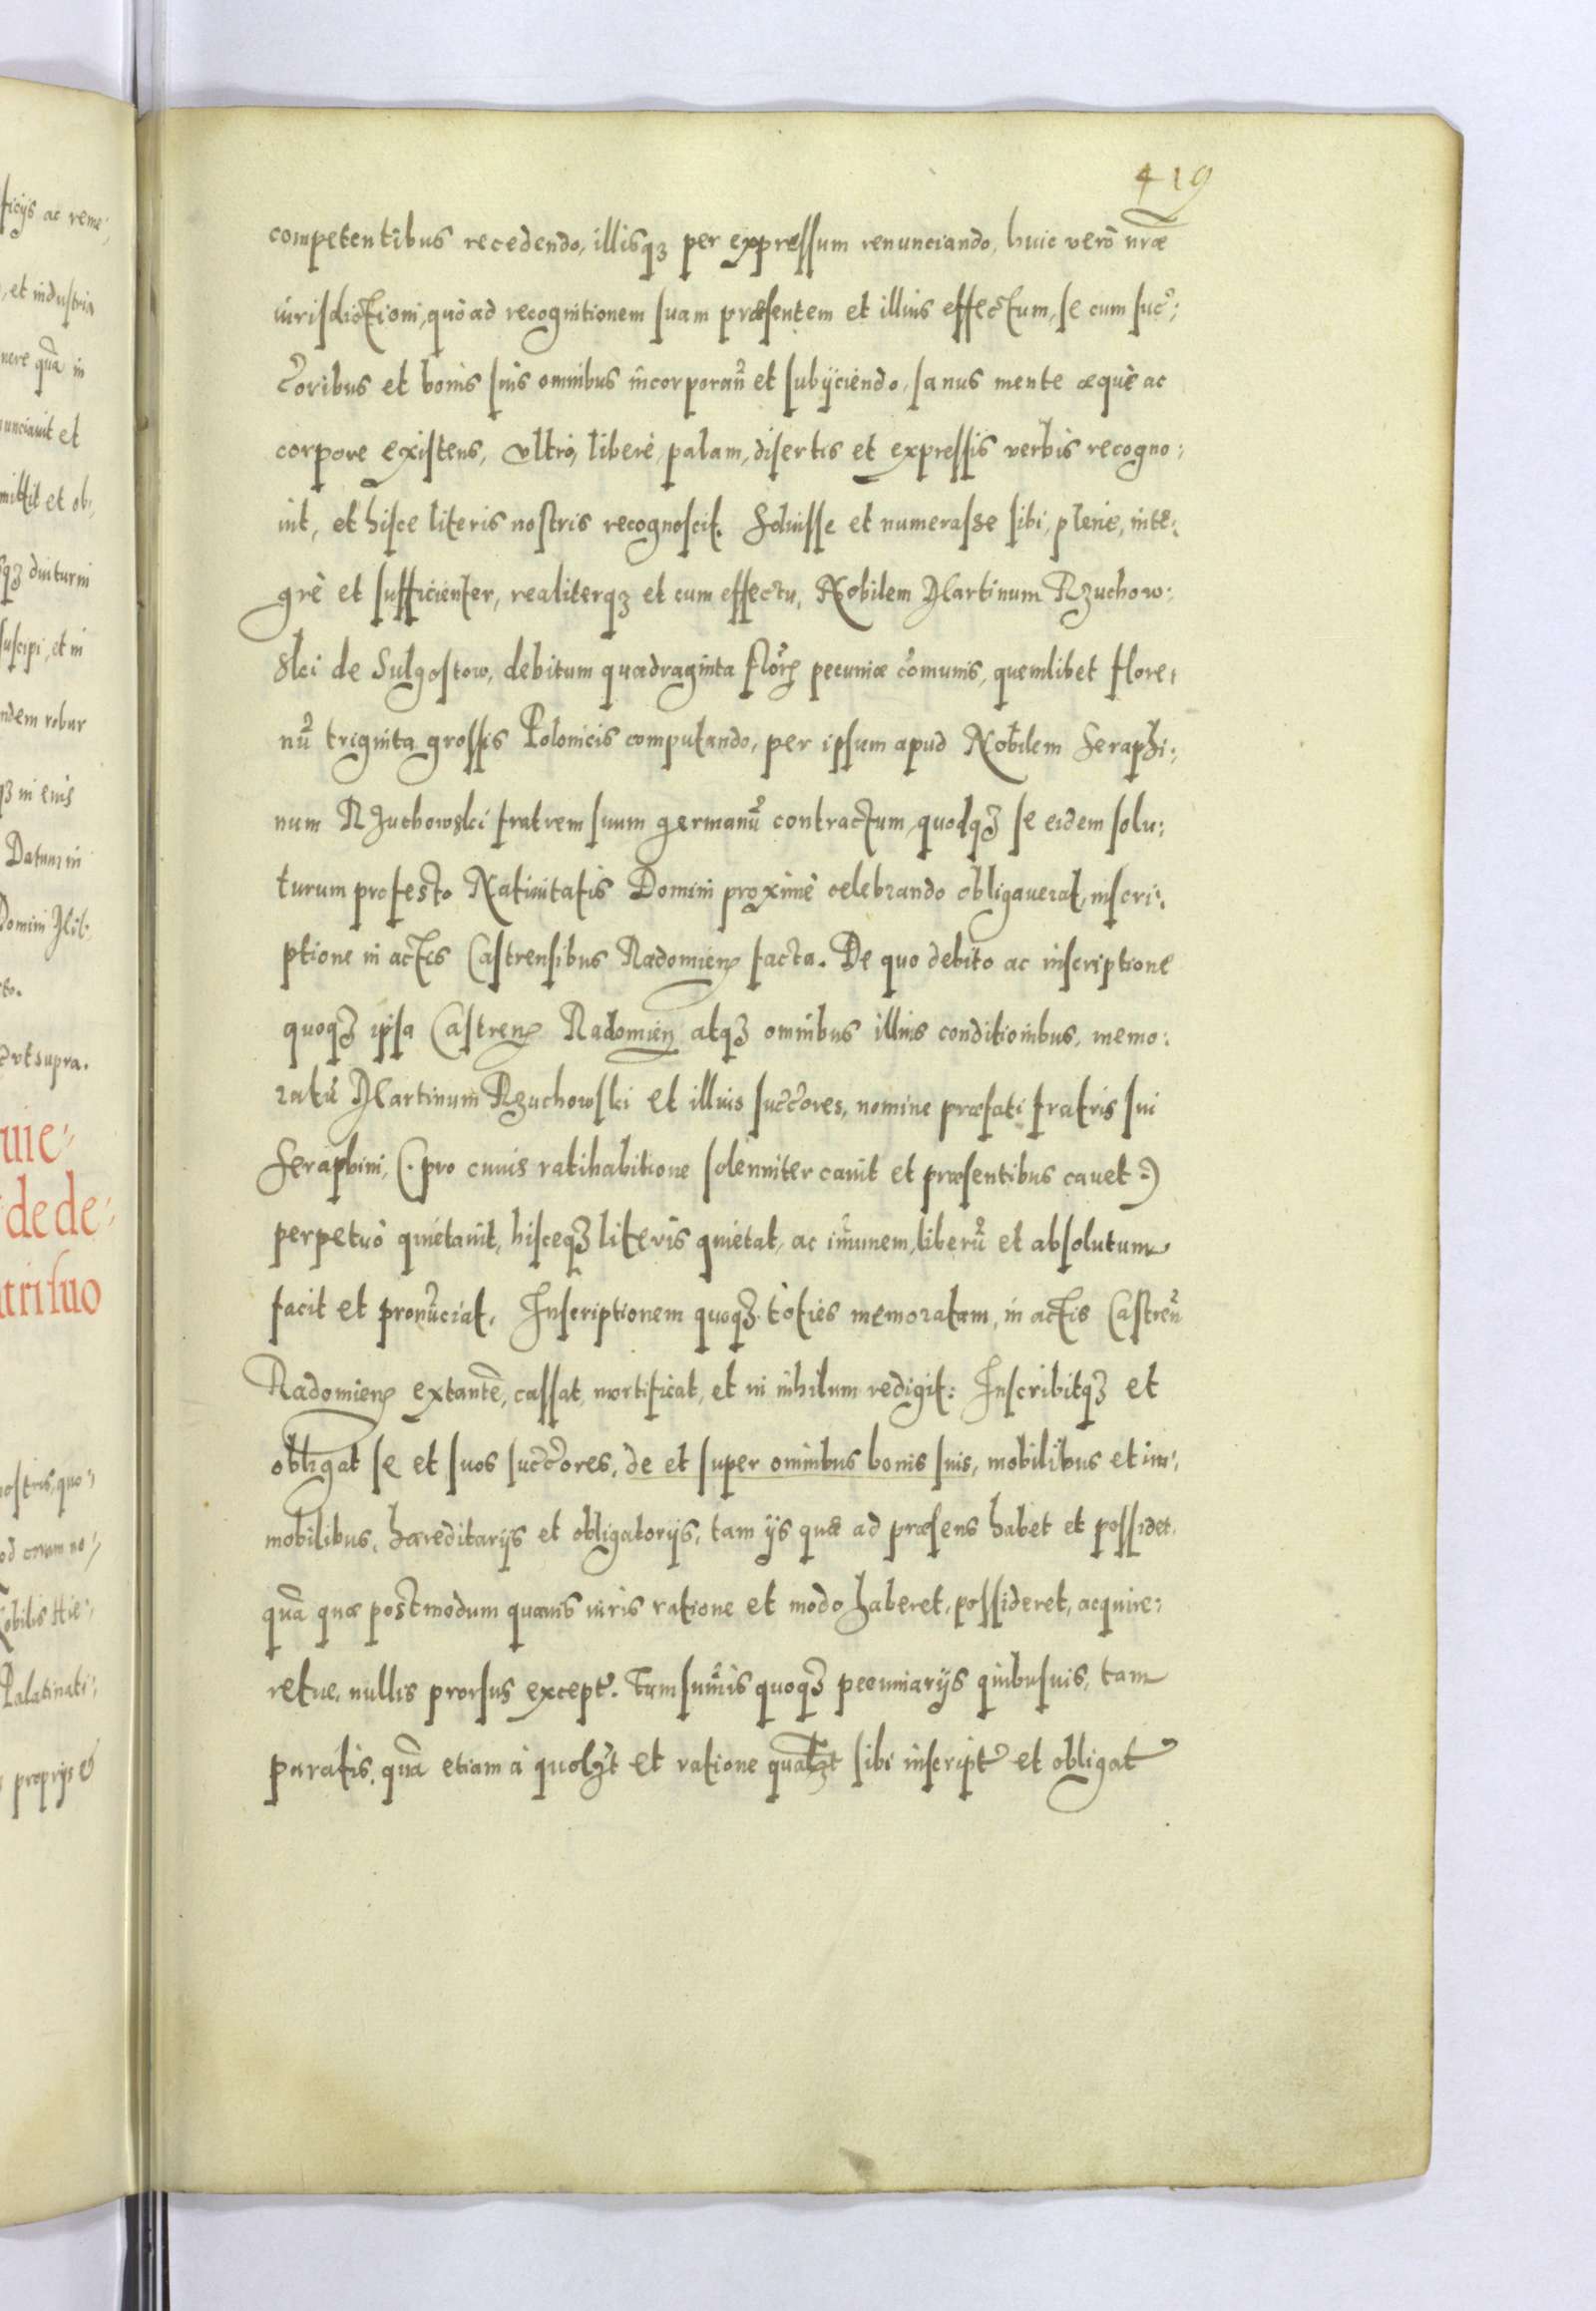 419
competentibus recedendo, illisqȝ per expressum renunciando, huic verò nr̃æ
iurisdictioni, quò ad recognitionem suam præsentem et illius effectum, se cum suc:
c̃oribus et bonis suis omnibus incorporañ et subÿciendo, sanus mente æquè ac
corpore existens, ultrò, liberè, palam, disertis et expressis verbis recogno:
uit, et hisce literis nostris recognoscit. Soluisse et numerasse sibi, plenè, inte:
grè et sufficienter, realiterqȝ et cum effectu, Nobilem Martinum Rzuchow:
ski de Sulgostow, debitum quadraginta floꝝ pecuniæ com̃unis, quemlibet flore:
nũ triginta grossis Polonicis computando, per ipsum apud Nobilem Seraphi:
num Rzuchowski fratrem suum germanũ contractum, quodqȝ se eidem solu:
turum pro festo Natiuitatis Domini proximè celebrando obligauerat, inscri:
ptione in actis Castrensibus Radomieñ facta. De quo debito ac inscriptione
quoqȝ ipsa Castreñ Radomieñ atqȝ omnibus illius conditionibus, memo:
ratũ Martinum Rzuchowski et illius succ̃ores, nomine præfati fratris sui
Seraphini, (. pro cuius ratihabitione solenniter cauit et præsentibus cauet .)
perpetuò quietauit, hisceqȝ literis quietat, ac im̃unem, liberũ et absolutum
facit et pronũciat. Inscriptionem quoqȝ toties memoratam, in actis Castreñ
Radomieñ extantẽ, cassat, mortificat, et in nihilum redigit: Inscribitqȝ et
obligat se et suos succ̃ores, de et super omnibus bonis suis, mobilibus et im:
mobilibus, hæreditarÿs et obligatorÿs, tam ÿs quæ ad præsens habet et possidet,
quã quæ postmodum quouis iuris ratione et modo haberet, possideret, acquire:
retue, nullis prorsus except̃. Tum sum̃is quoqȝ pecuniarÿs quibusuis, tam
paratis, quã etiam à quolȝt et ratione qualȝt sibi inscript̃ et obligat̃